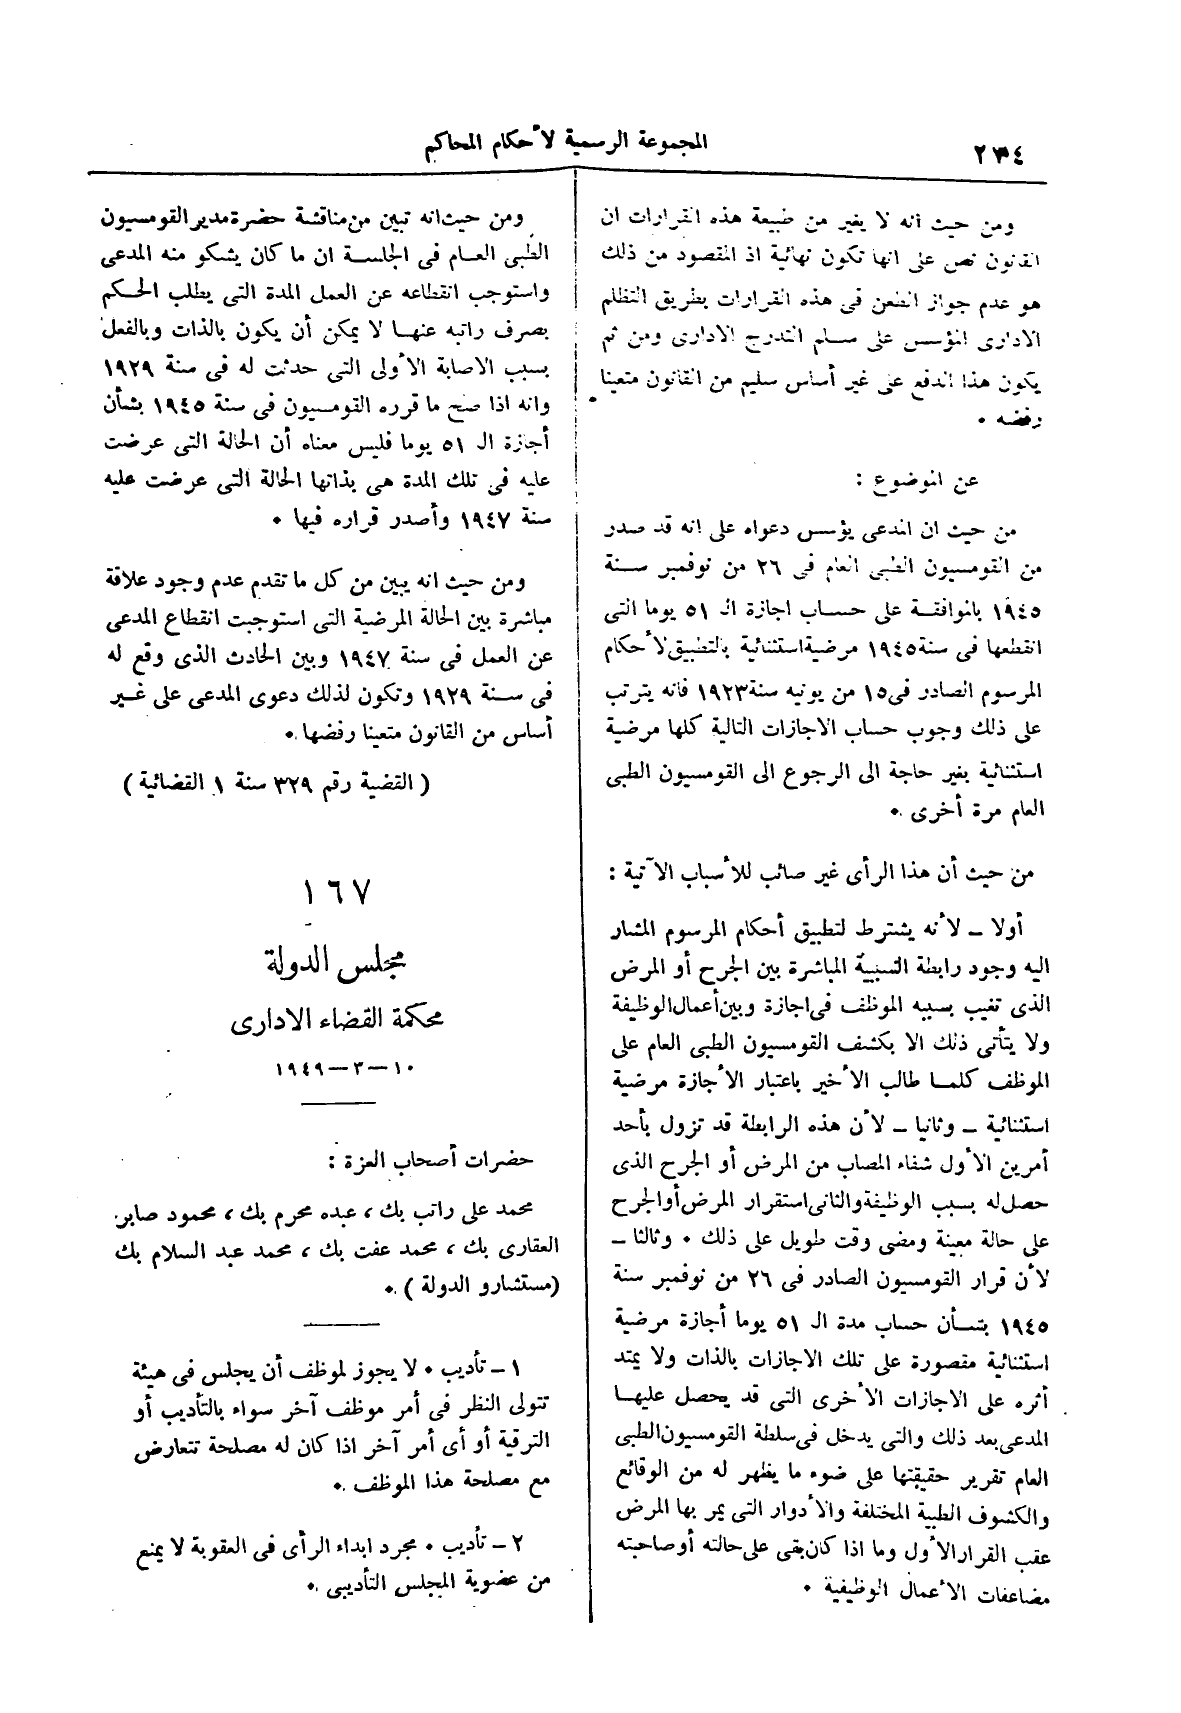 ٢٣٤
المجموعة الرسمية لأحكام المحاكم
ومن حيث أنه لا يغير من طبيعة هذه القرارات ان
القانون نص على انها تكون نهائية اذ المقصود من ذلك
هو عدم جواز الطعن فى هذه القرارات بطريق التظلم
الادارى المؤسس على سلم التدرج الادارى ومن ثم
يكون هذا الدفع على غير أساس سليم من القانون متعينا
رفضه .
عن الموضوع :
من حيث ان المدعى يؤسس دعواه على انه قد صدر
من القومسيون الطبى العام فى ٢٦ من نوفمبر سنة
١٩٤٥ بالموافقة على حساب اجازة الـ ٥١ يوما التى
انقطعها فى سنة ١٩٤٥ مرضية استثنائية بالتطبيق لأحكام
المرسوم الصادر فى ١٥ من يونيه سنة ١٩٢٣ فانه يترتب
على ذلك وجوب حساب الاجازات التالية كلها مرضية
استثنائية بغير حاجة الى الرجوع الى القومسيون الطبى
العام مرة أخرى .
من حيث أن هذا الرأى غير صائب للأسباب الآتية :
أولا ــ لأنه يشترط لتطبيق أحكام المرسوم المشار
اليه وجود رابطة السببية المباشرة بين الجرح أو المرض
الذى تغيب بسببه الموظف فى اجازة وبين أعمال الوظيفة
ولا يتأتى ذلك الا بكشف القومسيون الطبى العام على
الموظف كلما طالب الأخير باعتبار الأجازة مرضية
استثنائية ــ وثانيا ــ لأن هذه الرابطة قد تزول بأحد
أمرين الأول شفاء المصاب من المرض أو الجرح الذى
حصل له بسبب الوظيفة والثانى استقرار المرض أو الجرح
على حالة معينة ومضى وقت طويل على ذلك . وثالثا ــ
لأن قرار القومسيون الصادر فى ٢٦ من نوفمبر سنة
١٩٤٥ بشأن حساب مدة الـ ٥١ يوما أجازة مرضية
استثنائية مقصورة على تلك الاجازات بالذات ولا يمتد
أثره على الاجازات الأخرى التى قد يحصل عليها
المدعى بعد ذلك والتى يدخل فى سلطة القومسيون الطبى
العام تقرير حقيقتها على ضوء ما يظهر له من الوقائع
والكشوف الطبية المختلفة والأدوار التى يمر بها المرض
عقب القرار الأول وما اذا كان بقى على حالته أو صاحبته
مضاعفات الأعمال الوظيفية .
ومن حيث انه تبين من مناقشة حضرة مدير القومسيون
الطبى العام فى الجلسة ان ما كان يشكو منه المدعى
واستوجب انقطاعه عن العمل المدة التى يطلب الحكم
بصرف راتبه عنها لا يمكن أن يكون بالذات وبالفعل
بسبب الاصابة الأولى التى حدثت له فى سنة ١٩٢٩
وانه اذا صح ما قرره القومسيون فى سنة ١٩٤٥ بشأن
أجازة الـ ٥١ يوما فليس معناه أن الحالة التى عرضت
عليه فى تلك المدة هى بذاتها الحالة التى عرضت عليه
سنة ١٩٤٧ وأصدر قراره فيها .
ومن حيث انه يبين من كل ما تقدم عدم وجود علاقة
مباشرة بين الحالة المرضية التى استوجبت انقطاع المدعى
عن العمل فى سنة ١٩٤٧ وبين الحادث الذى وقع له
فى سنة ١٩٢٩ وتكون لذلك دعوى المدعى على غير
أساس من القانون متعينا رفضها .
( القضية رقم ٣٢٩ سنة ١ القضائية )
١٦٧
مجلس الدولة
محكمة القضاء الادارى
١٠ ــ ٣ ــ ١٩٤٩
حضرات أصحاب العزة :
محمد على راتب بك ، عبده محرم بك ، محمود صابر
العقارى بك ، محمد عفت بك ، محمد عبد السلام بك
(مستشارو الدولة ) .
١ ــ تأديب . لا يجوز لموظف أن يجلس فى هيئة
تتولى النظر فى أمر موظف آخر سواء بالتأديب أو
الترقية أو أى أمر آخر اذا كان له مصلحة تتعارض
مع مصلحة هذا الموظف .
٢ ــ تأديب . مجرد ابداء الرأى فى العقوبة لا يمنع
من عضوية المجلس التأديبى .